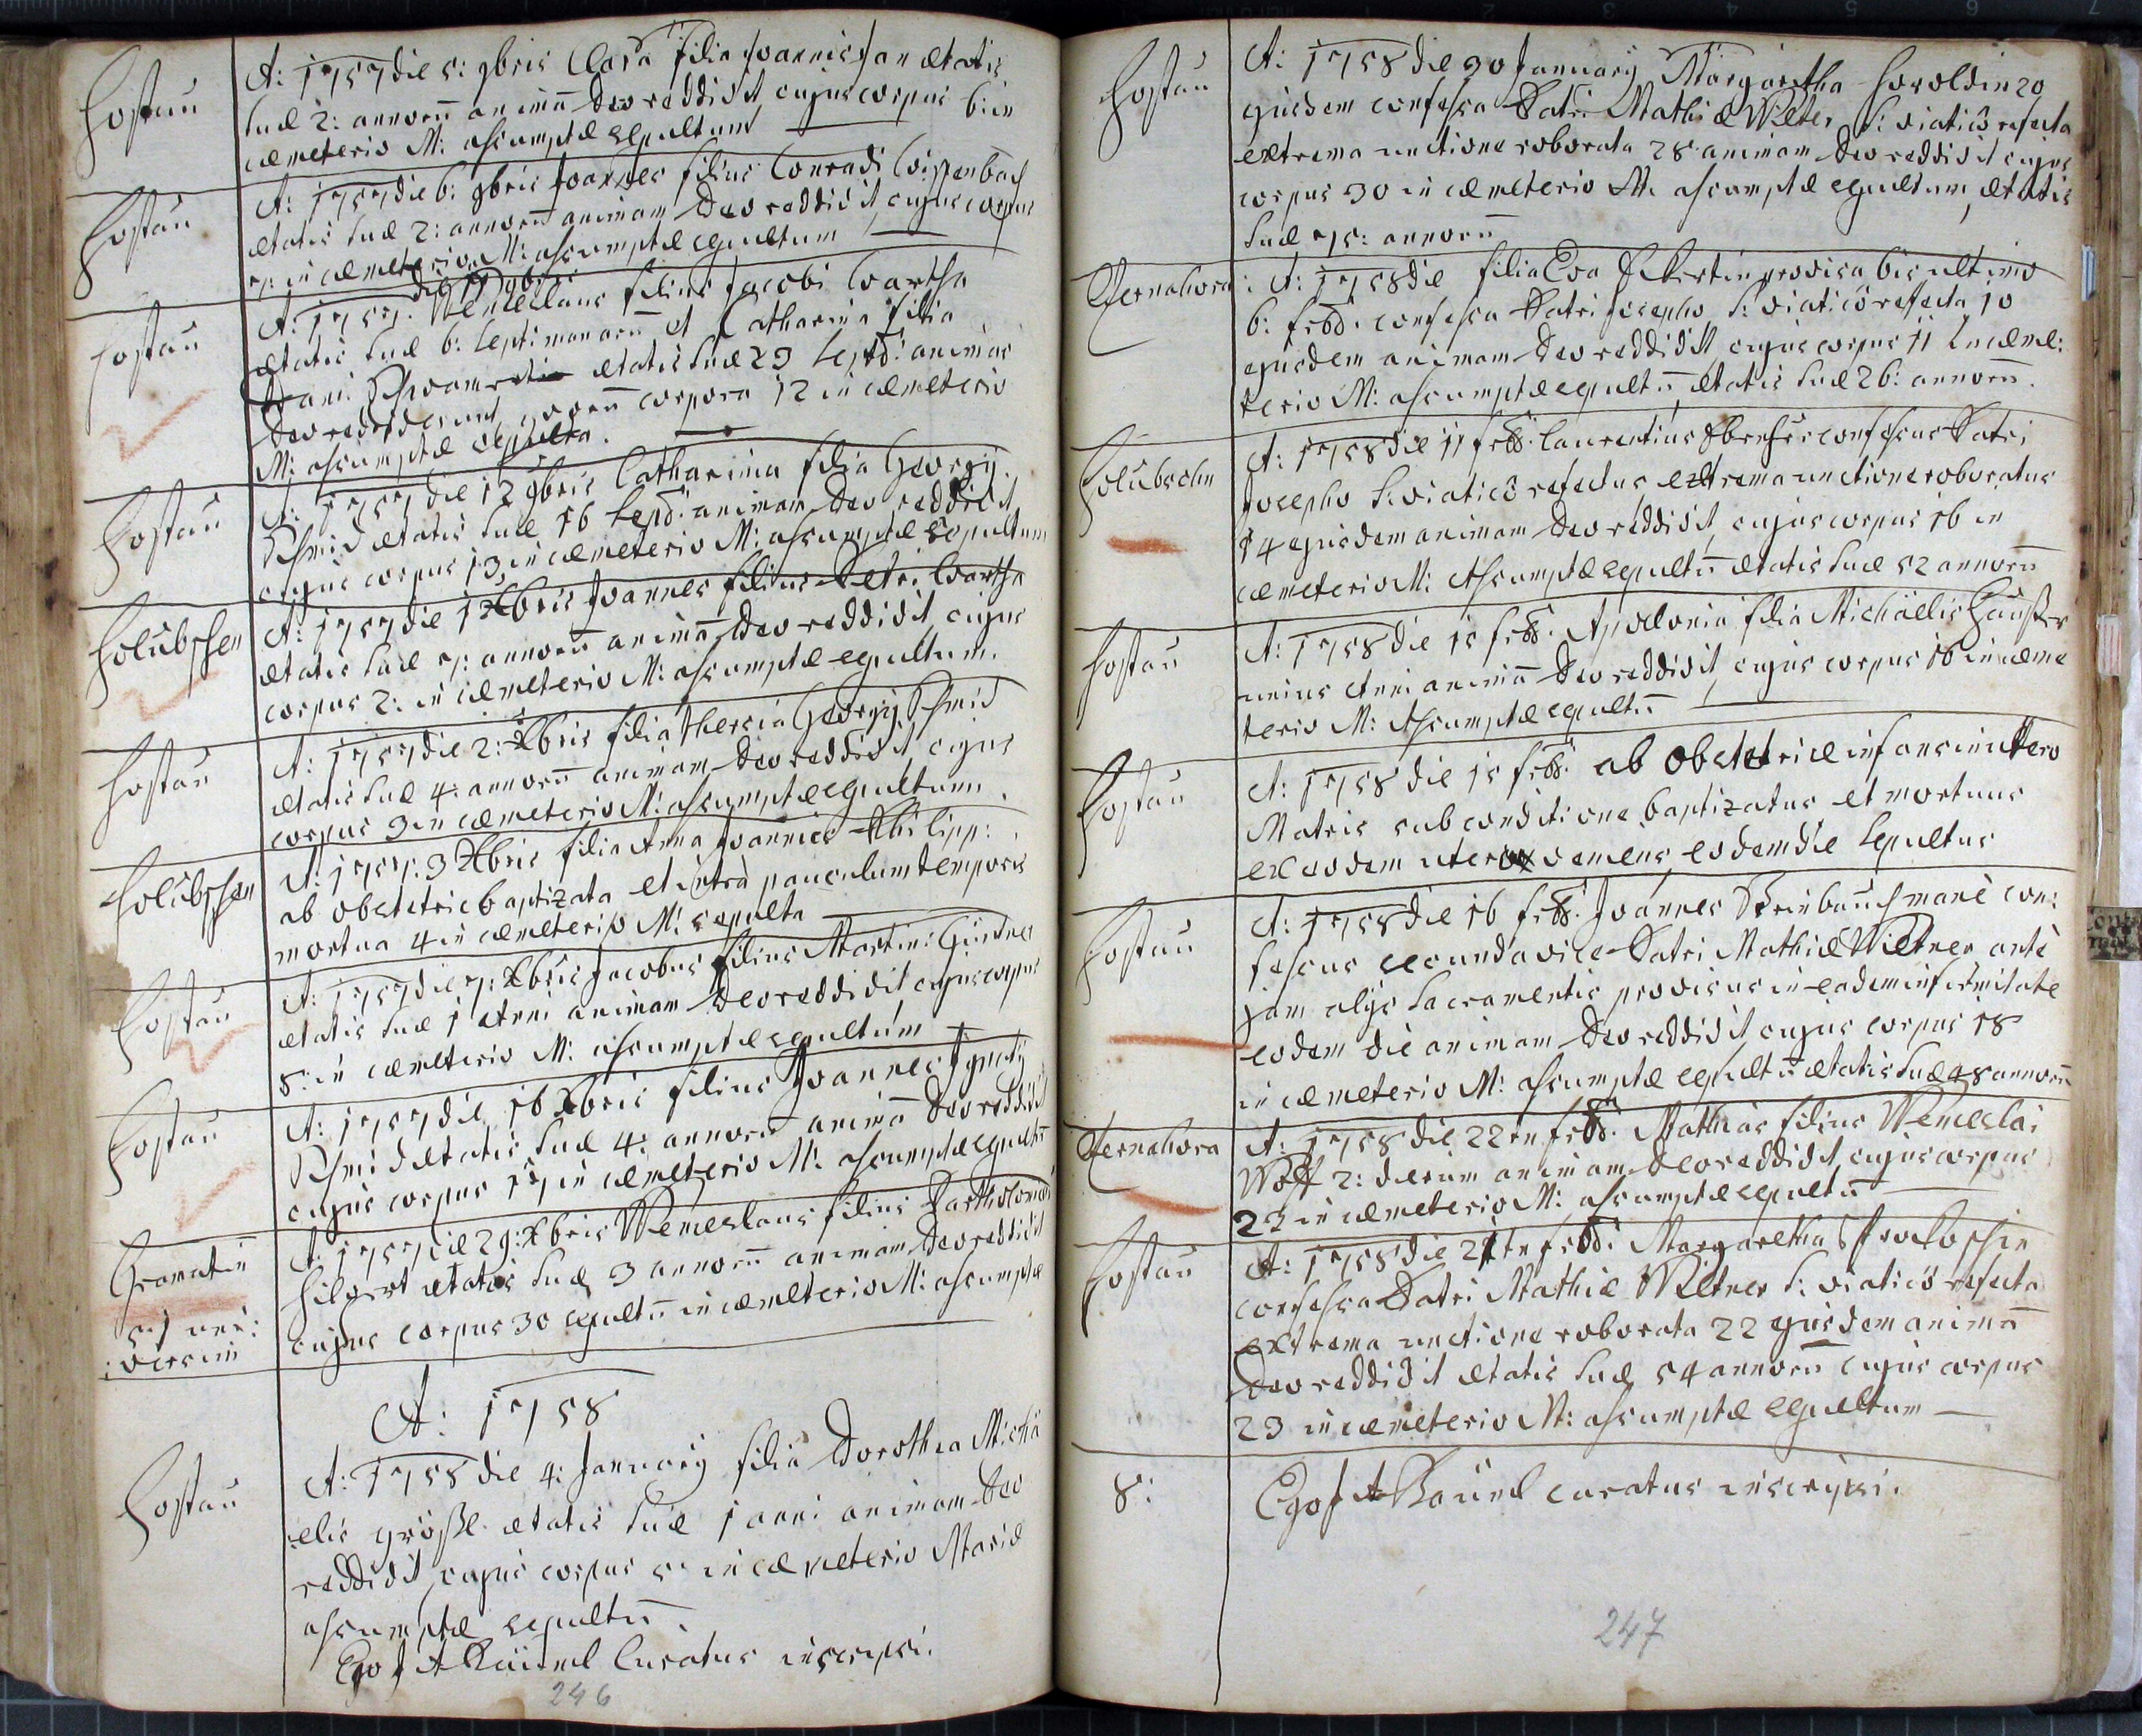 Hostau
A: 1757 die 5: 9bris Clara filia Joannis Jan ætatis
suæ 2: annorū animā Deo reddidit, cujus corpus 6: in
cæmeterio M: assumptæ sepultum
Hostau
A: 1757 die 6: 9bris Joannes filius Conradi
ætatis suæ 2: annorū animam Deo reddidit, cujus corpus
7: in cæmeterio M: assumptæ sepultum
Hostau
die 11 9bris
A: 1757: Wenceslaus filius Jacobi Wartha
ætatis suæ 6: septimanarū et Catharina filia
ætatis suæ 23 sept: animas
Deo reddiderunt, quorū corpora 12 in cæmeterio
M: assumptæ sepulta.
Hostau
A: 1757 die 12 9bris Catharina filia Georgij
Schmid ætatis suæ 16 sept: animam Deo reddidit
cujus corpus 13 in cæmeterio M: assumptæ sepultum
Holubschen
A: 1757 die 1 Xbris Joannes filius Petri Wartha
ætatis suæ 7: annorū animā Deo reddidit, cujus
corpus 2: in cæmeterio M: assumptæ sepultum.
Hostau
A: 1757 die 2: Xbris filia Theresia Georgij Schmid
ætatis suæ 4: annorū animam Deo reddidit, cujus
corpus 3 in cæmeterio M: assumptæ sepultum.
Holubschen
A: 1757: 3 Xbris filia Anna Joannis Philipp:
ab obstetrice baptizata et intra pauculum temporis
mortua 4 in cæmeterio M: sepulta
Hostau
A: 1757 die 7: Xbris Jacobus filius Martini
ætatis suæ 1 Anni animam Deo reddidit cujus corpus
8: in cæmeterio M: assumptæ sepultum
Hostau
A: 1757 die 16 Xbris filius Joannes Ignatij
Schmid ætatis suæ 4: annorū animā Deo reddidit
cujus corpus 17 in cæmeterio M: assumptæ sepultū
Gramatin
A: 1757 die 29: Xbris Wenceslaus filius Bartholomæi
Hilpert ætatis suæ 3 annorū animam Deo reddidit
cujus corpus 30 sepultū in cæmeterio M: assumptæ
A: 1758
Hostau
A: 1758 die 4: Januarij filia Dorothea Michä
elis größl ætatis suæ 1 anni animam Deo
reddidit, cujus corpus 5: in cæmeterio Mariæ
assumptæ sepultū
Ego J A Curatus inscripsi.
246
Hostau
A: 1758 die 30 Januarij Margaretha Heroldin 20
ejusdem confessa Patri Mathiæ S: viaticô refecta
extrema unctione roborata 28 animam Deo reddidit cujus
corpus 30 in cæmeterio M: assumptæ sepultum, ætatis
suæ 75: annorū
Zernahora
A: 1758 die filia Eva provisa bis ultimo
6: feb: confessa Patri Josepho S: viaticô refecta 10
ejusdem animam Deo reddidit, cujus corpus 11 in cæme:
terio M: assumptæ sepultū, ætatis suæ 26: annorū.
Holubschn
A: 1758 die 11 feb: Laurentius confessus Patri
Josepho S: viaticô refectus, extrema unctione roboratus
14 ejusdem animam Deo reddidit, cujus corpus 16 in
cæmeterio M: Assumptæ sepultū ætatis suæ 52 annorū
Hostau
A: 1758 die 15 feb: Apollonia filia Michaelis
unius Anni animā Deo reddidit, cujus corpus 16 in cæme
terio M: Assumptæ sepultū
Hostau
A: 1758 die 15 feb: ab obstetrice infans in utero
Matris sub conditione baptizatus et mortuus
ex eodem utero veniens, eodem die sepultus
Hostau
A: 1758 die 16 feb: Joannes mane con:
fessus secunda vice Patri Mathiæ Wiltner ante
jam alijs Sacramentis provisus in eadem infirmitate
eodem die animam Deo reddidit cujus corpus 18
in cæmeterio M: assumptæ sepultū ætatis suæ 48 annorū
Zernahora
A: 1758 die 22tn feb: Mathias filius Wenceslai
Wolf 2: dierum animam Deo reddidit, cujus corpus
23 in cæmeterio M: assumptæ sepultū
Hostau
A: 1758 die 21tn feb: Margaretha
confessa Patri Mathiæ Wiltner S: viaticô refecta
extrema unctione roborata 22 ejusdem animā
Deo reddidit ætatis suæ 54 annorū cujus corpus
23 in cæmeterio M: assumptæ sepultum
8:
Ego J A curatus inscripsi.
247